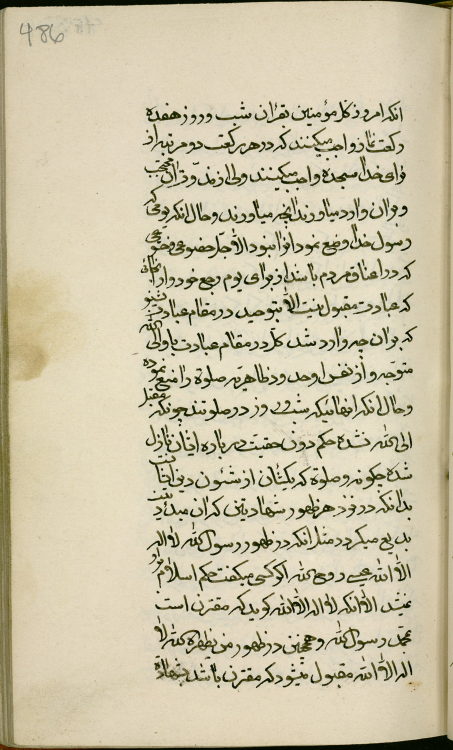 486
انکه امروز کل مؤمنین بقرآن شب و روز هفده
رکعت نماز واجب میکنند که در هر رکعت دو مرتبه از
برای خدا سجده واجب میکنند ولی از
و بر ان وارد میاورند انچه میاورند و حال انکه
رسول خدا وضع نمود انرا نبود الا لاجل خضوعی
که در اعناق مردم باشد از برای یوم رجع خود و از
که عبادت مقبول نیست الا بتوحید در مقام عبادت
که بر ان چه وارد شد کل در مقام عبادت یا ولی الله
متوجه و از نفس او حد و ظاهریه صلوة را اخذ نموده
و حال انکه انهائیکه شب و روز در صلوتند چونکه مقبل
الی الله نشده حکم دون حقیت درباره ایشان نازل
شده چگونه و صلوة که یکشأن از شئون دین ایشان
بدانکه در نزد هر ظهور شهادتین که ان مبدء دین
بدیع میگردد مثل انکه در ظهور رسول الله لا اله
الا الله عیسی روح الله اگر کسی میگفت حکم اسلام بر او
نمیشد الا انکه لا اله الا الله گوید که مقترن است
محمد رسول الله و همچنین در ظهور من یظهره الله لا
اله الا الله مقبول نمیشود که مقترن باشد بشهادة